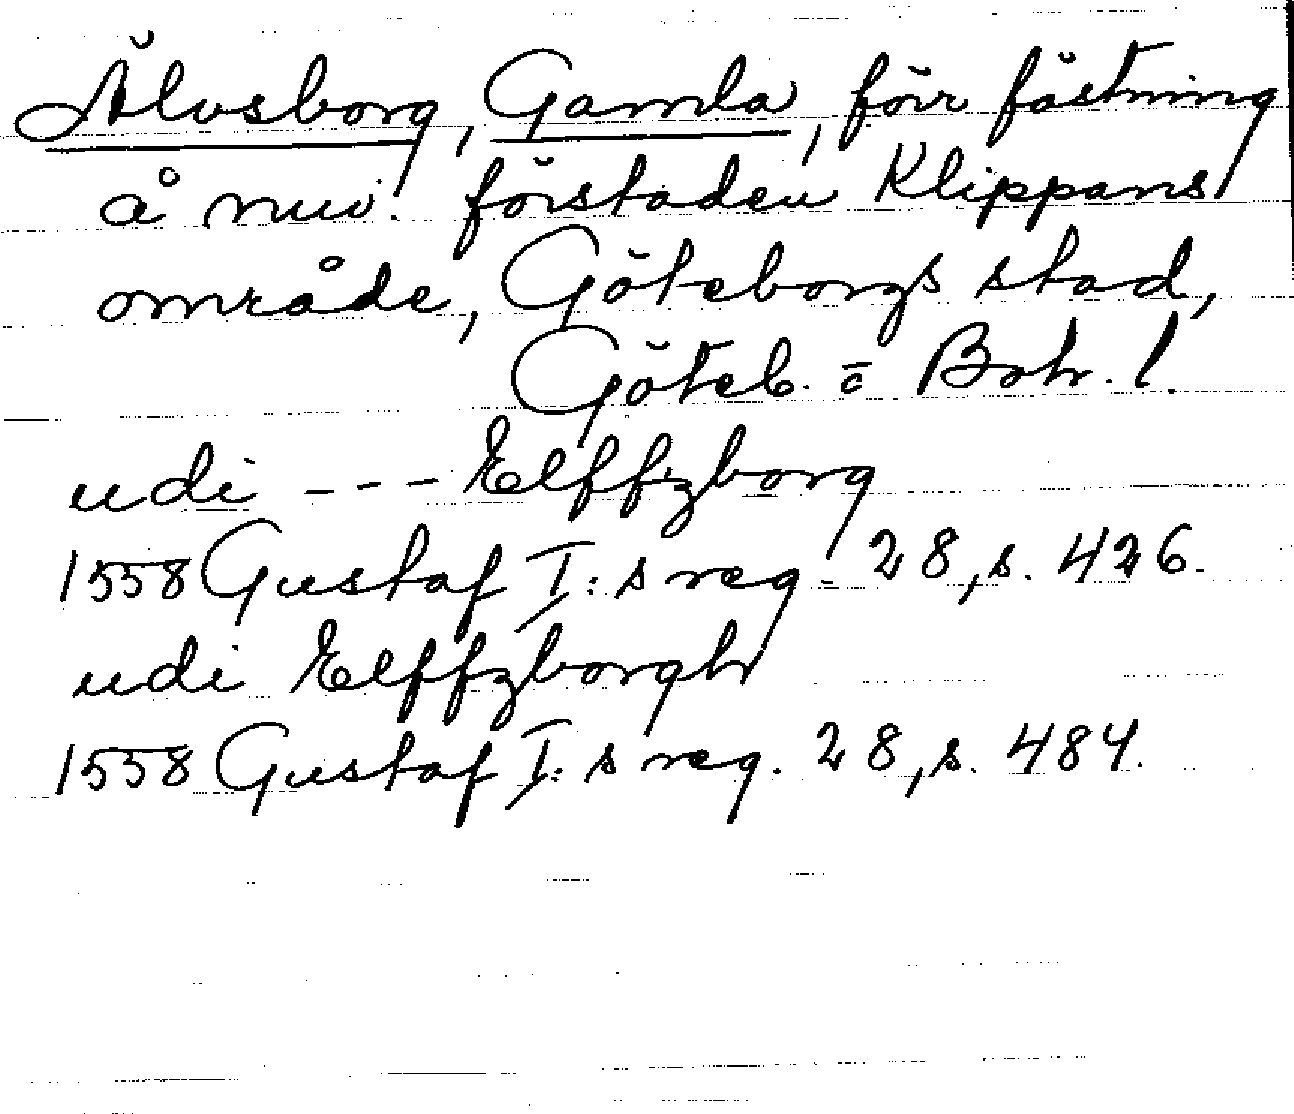 Älvsborg, Gamla, förr fästning
å nuv. förstaden Klippans
område, Göteborgs stad,
Göteb. o Boh. l.
udi --- Elffzborg
1558 Gustaf I:s reg. 28, s. 426.
udi Elffzborgh
1558 Gustaf I:s reg. 28, s. 484.